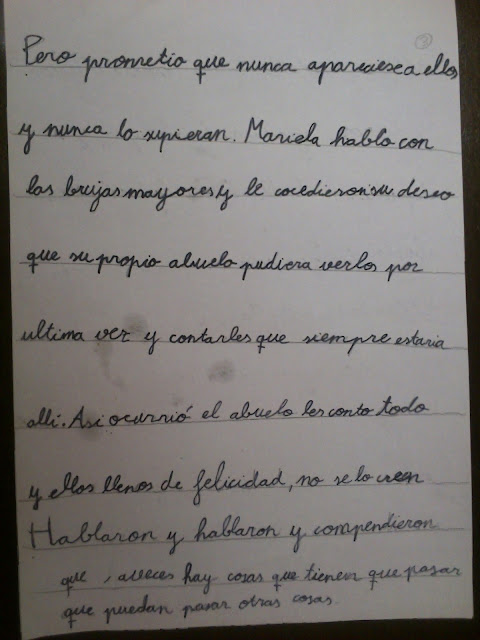 Pero prometio que nunca apareciese a ellos
y nunca lo supieran. Mariela hablo con
las brujas mayores y le cocedieron su deseo
que su propio abuelo pudiera verlos por
ultima vez y contarles que siempre estaria
alli. Asi ocurrió el abuelo les conto todo
y ellos llenos de felicidad, no se lo creen
Hablaron y hablaron y compendieron
que, aveces hay cosas que tienen que pasar
que puedan pasar otras cosas.